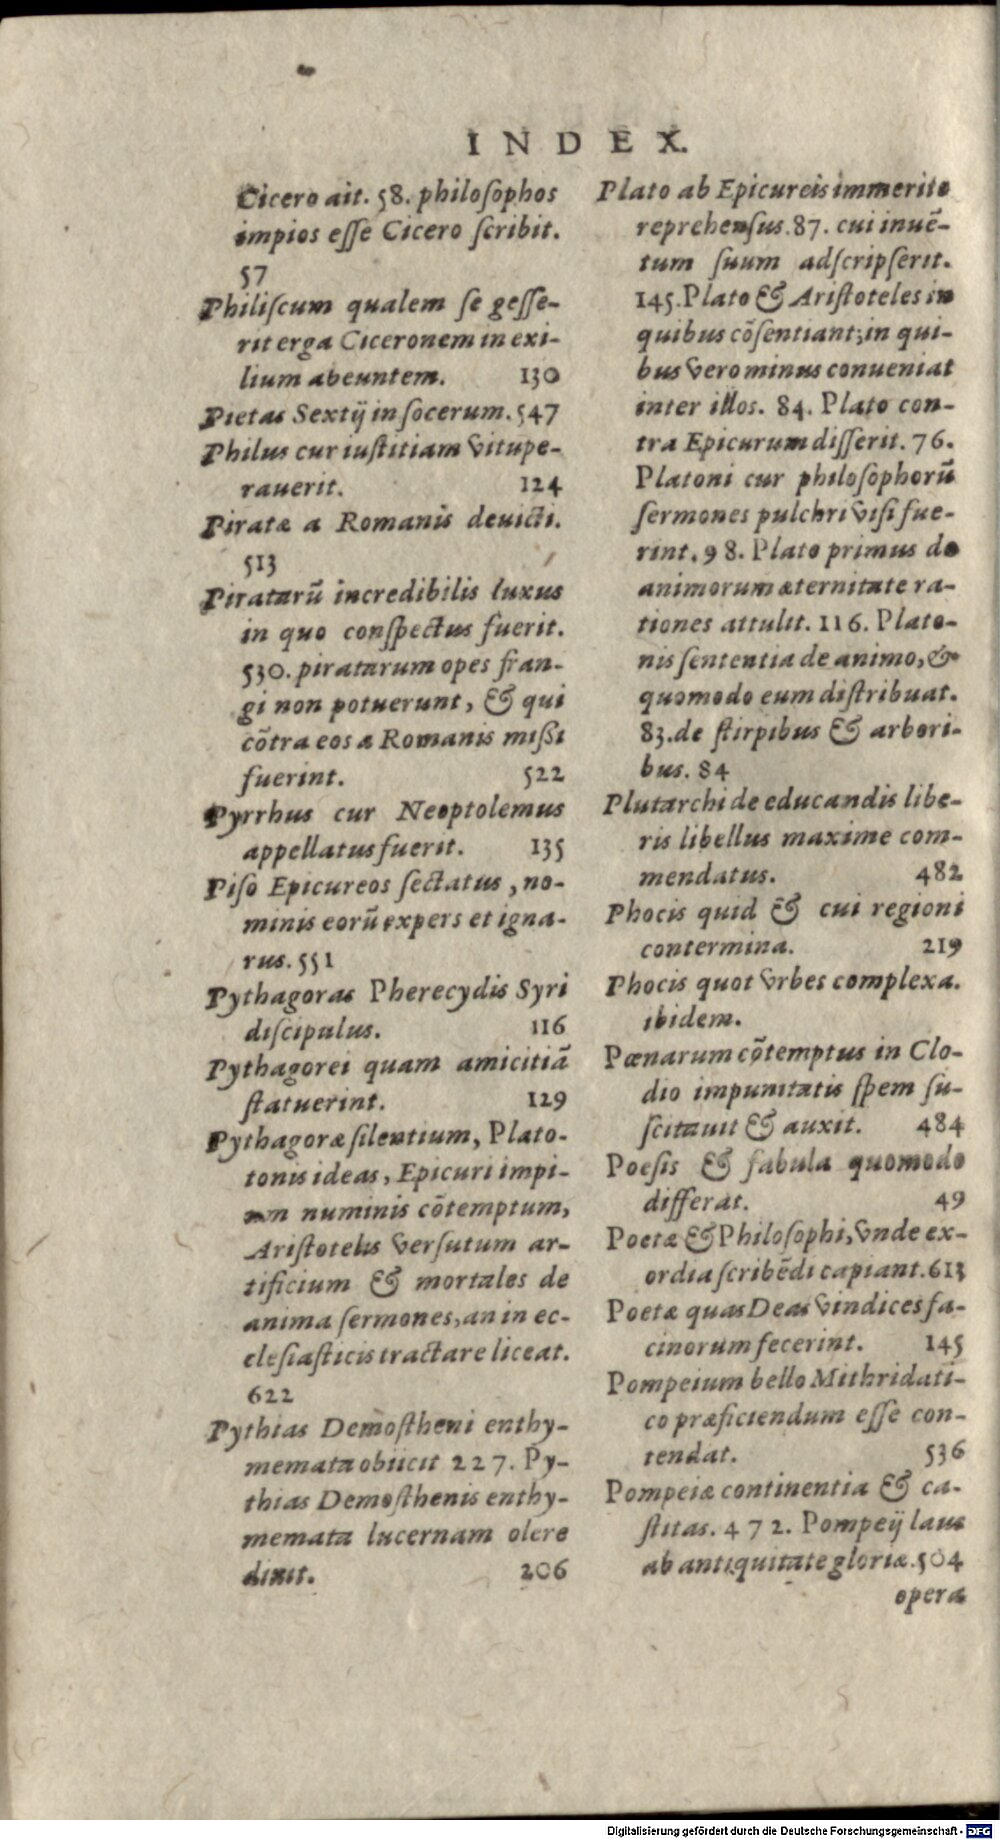 INDEX.
Cicero ait. 58. philoſophos
impios eſſe Cicero ſcribit.
57
Philiſcum qualem ſe geſſe-
rit erga Ciceronem in exi-
lium abeuntem. 130
Pietas Sextij in ſocerum. 547
Philus cur iuſtitiam vitupe-
rauerit. 124
Piratæ a Romanis deuicti.
513
Piratarū incredibilis luxus
in quo conſpectus fuerit.
530. piratarum opes fran-
gi non potuerunt, & qui
cōtra eos a Romanis miſsi
fuerint. 522
Pyrrhus cur Neoptolemus
appellatus fuerit. 135
Piſo Epicureos ſectatus, no-
minis eorū expers et igna-
rus. 551
Pythagoras Pherecydis Syri
diſcipulus. 116
Pythagorei quam amicitiā
ſtatuerint. 129
Pythagoræ ſilentium, Plato-
tonis ideas, Epicuri impi-
um numinis cōtemptum,
Ariſtotelis verſutum ar-
tificium & mortales de
anima ſermones, an in ec-
cleſiaſticis tractare liceat.
622
Pythias Demoſtheni enthy-
memata obiicit 227. Py-
thias Demoſthenis enthy-
memata lucernam olere
dixit. 206
Plato ab Epicureis immerito
reprehenſus. 87. cui inuē-
tum ſuum adſcripſerit.
145. Plato & Ariſtoteles in
quibus cōſentiant; in qui-
bus vero minus conueniat
inter illos. 84. Plato con-
tra Epicurum diſſerit. 76.
Platoni cur philoſophorū
ſermones pulchri viſi fue-
rint. 98. Plato primus de
animorum æternitate ra-
tiones attulit. 116. Plato-
nis ſententia de animo, &
quomodo eum diſtribuat.
83. de ſtirpibus & arbori-
bus. 84
Plutarchi de educandis libe-
ris libellus maxime com-
mendatus. 482
Phocis quid & cui regioni
contermina. 219
Phocis quot vrbes complexa.
ibidem.
Pœnarum cōtemptus in Clo-
dio impunitatis ſpem ſu-
ſcitauit & auxit. 484
Poeſis & fabula quomodo
differat. 49
Poetæ & Philoſophi, vnde ex-
ordia ſcribēdi capiant. 613
Poetæ quas Deas vindices fa-
cinorum fecerint. 145
Pompeium bello Mithridati-
co præficiendum eſſe con-
tendat. 536
Pompeiæ continentia & ca-
ſtitas. 472. Pompeij laus
ab antiquitate gloriæ. 504
opera
Digitalisierung gefördert durch die Deutsche Forschungsgemeinschaft - DFG